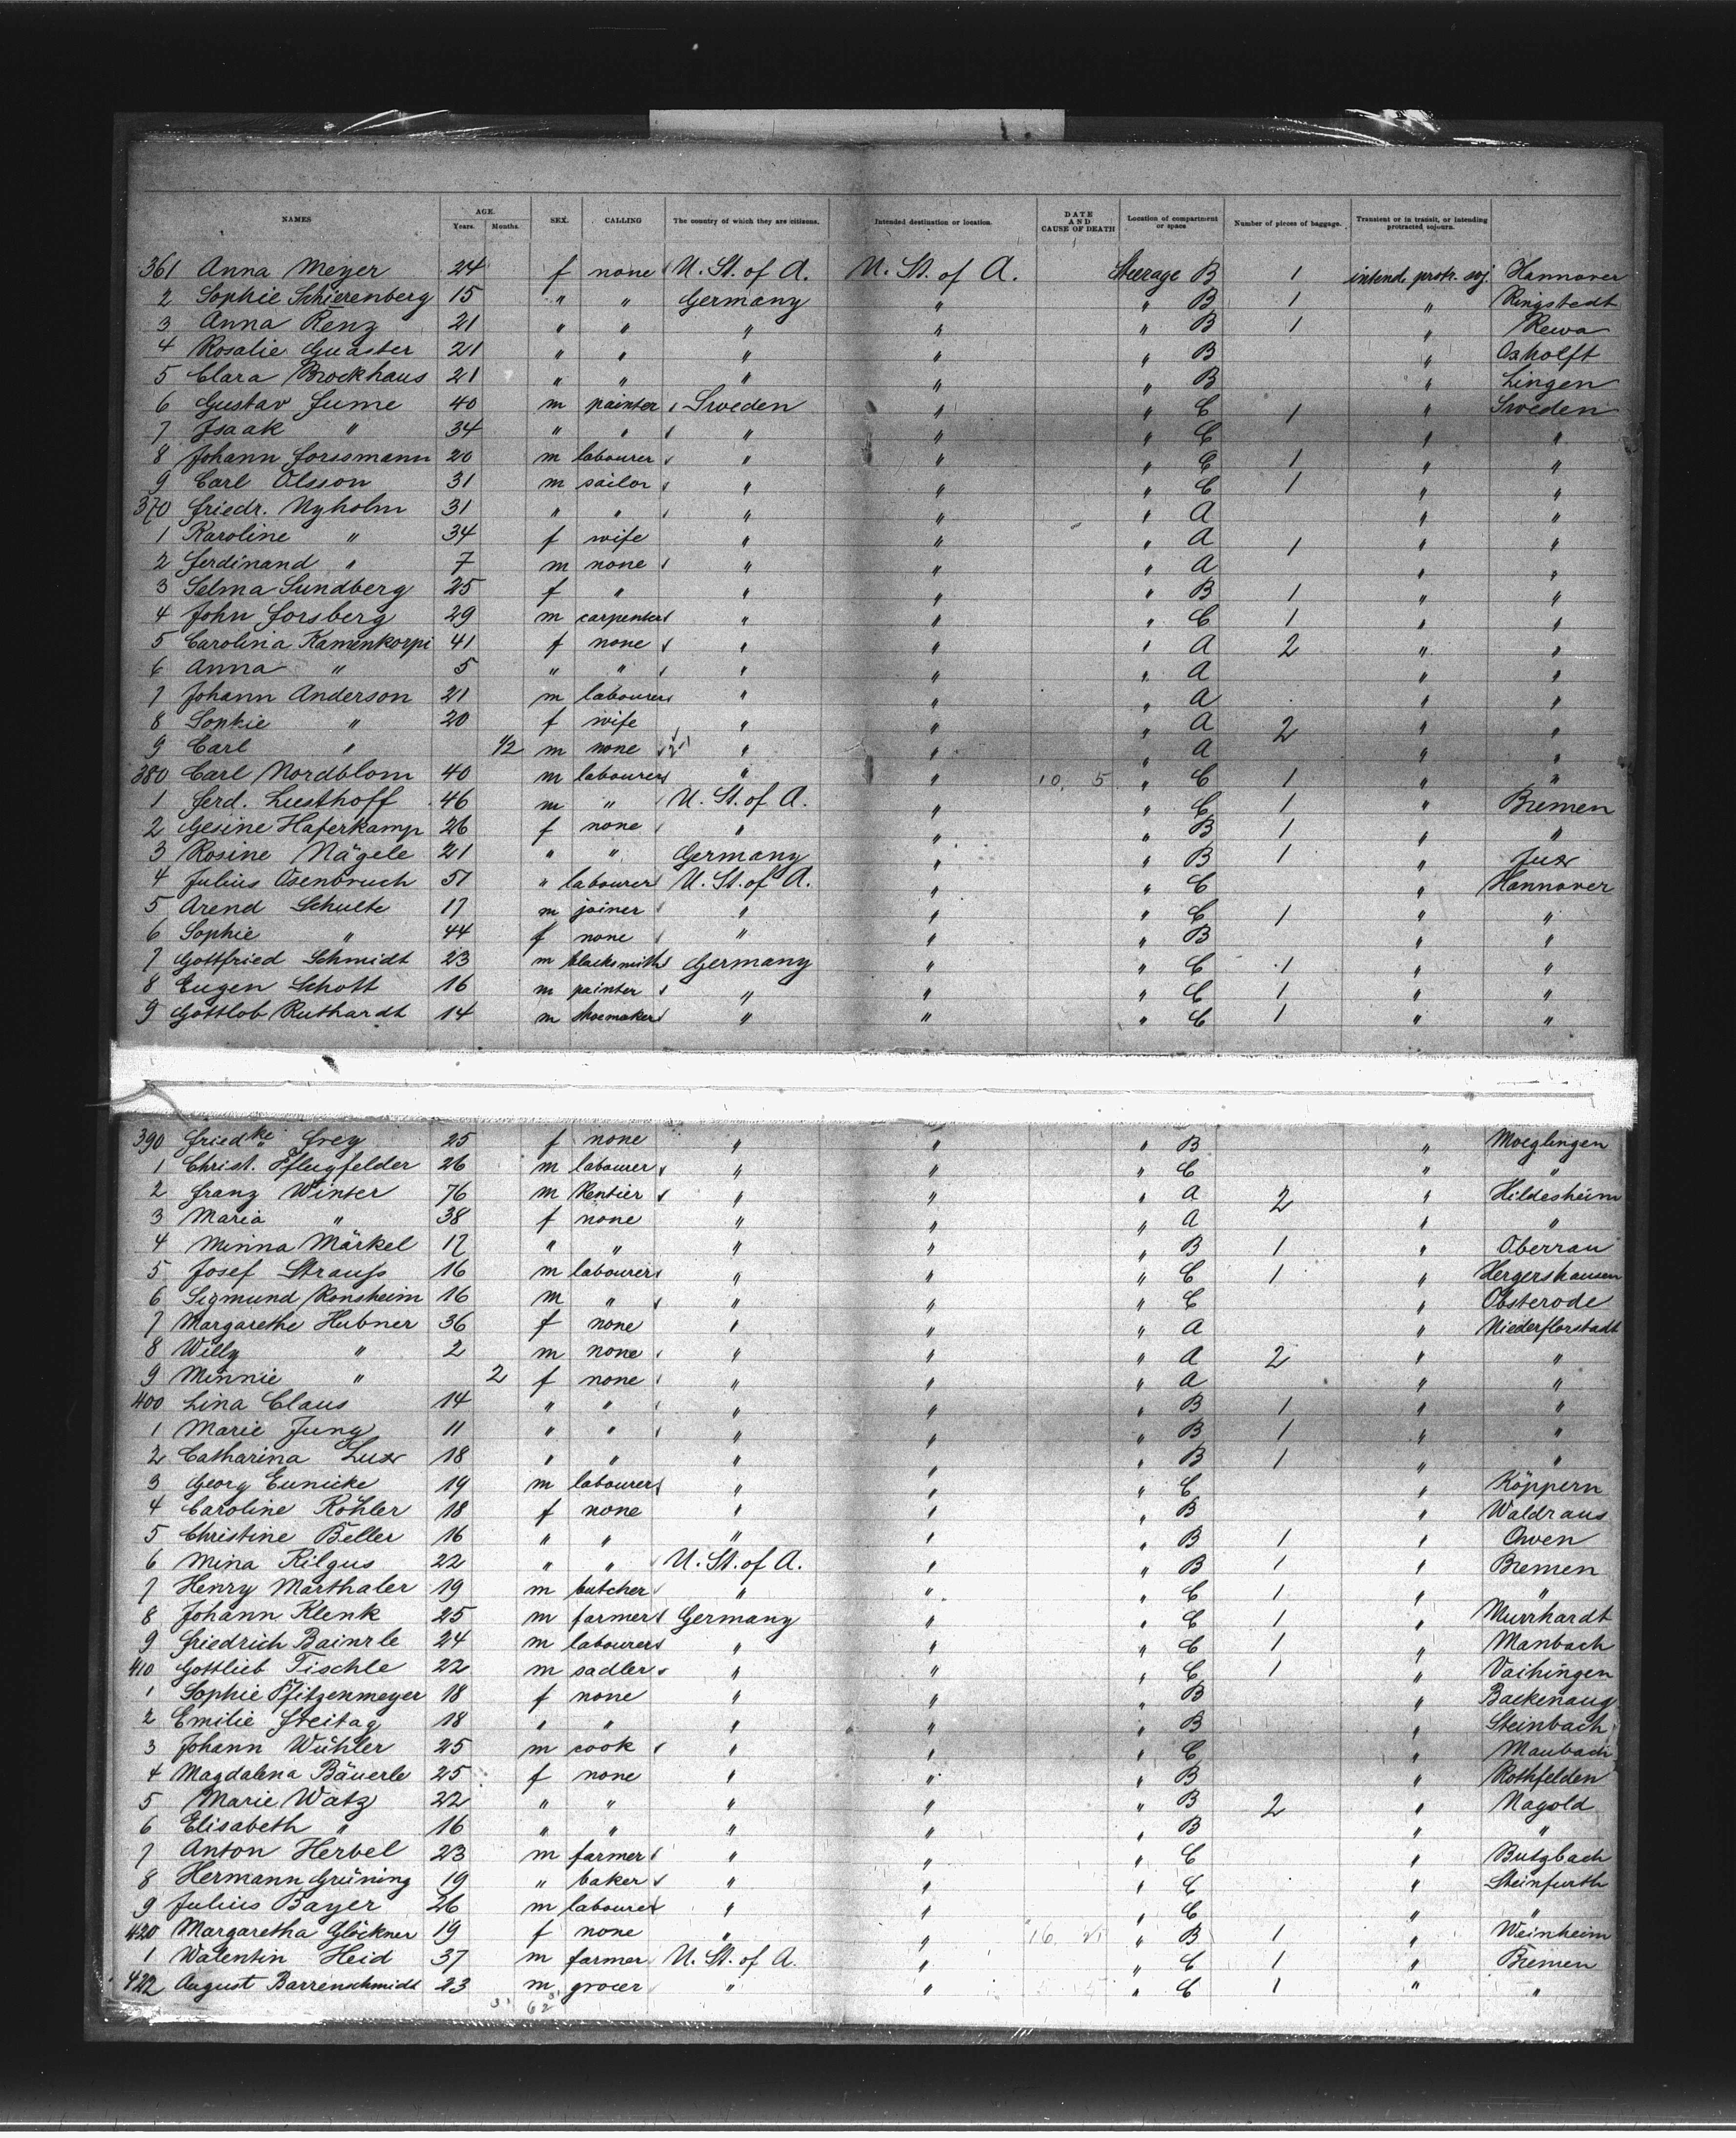 NAMES AGE. Years. Months. SEX. CALLING The country of which they are citizens. Intended destination or location. DATE AND CAUSE OF DEATH Location of compartment or space Number of pieces of baggage. Transient or in transit, or intending protracted sojourn.
361 Anna Meyer 24 f none U. St. of A. U. St. of A. Steerage B 1 intend. protr. soj. Hannover
2 Sophie Schierenberg 15 " " Germany " " B 1 " Ringstedt
3 Anna Renz 21 " " " " " B 1 " Rewa
4 Rosalie Guaster 21 " " " " " B " Oxholft
5 Clara Brockhaus 21 " " " " " B " Lingen
6 Gustav Jume 40 m painter Sweden " " C 1 " Sweden
7 Isaak " 34 " " " " " C " "
8 Johann Forssmann 20 m labourer " " " C 1 " "
9 Carl Olsson 31 m sailor " " " C 1 " "
370 Friedr. Nyholm 31 " " " " " A " "
1 Karoline " 34 f wife " " " A 1 " "
2 Ferdinand " 7 m none " " " A " "
3 Selma Sundberg 25 f " " " " B 1 " "
4 John Forsberg 29 m carpenter " " " C 1 " "
5 Carolina Kamenkorpi 41 f none " " " A 2 " "
6 Anna " 5 " " " " " A " "
7 Johann Anderson 21 m labourer " " " A " "
8 Sophie " 20 f wife " " " A 2 " "
9 Carl " 1/2 m none " " " A " "
380 Carl Nordblom 40 m labourer " " 10, 5 " C 1 " "
1 Ferd. Lusthoff 46 m " U. St. of A. " " C 1 " Bremen
2 Gesine Haferkamp 26 f none " " " B 1 " "
3 Rosine Nägele 21 " " Germany " " B 1 " Jux
4 Julius Osenbruch 51 " labourer U. St. of A. " " C " Hannover
5 Arend Schulte 17 m joiner " " " C 1 " "
6 Sophie " 44 f none " " " B " "
7 Gottfried Schmidt 23 m blacksmith Germany " " C 1 " "
8 Eugen Schott 16 m painter " " " C 1 " "
9 Gottlob Ruthardt 14 m shoemaker " " " C 1 " "
390 Friedke Frey 25 f none " " " B " Moeglingen
1 Christ. Pflugfelder 26 m labourer " " " C " "
2 Franz Winter 76 m Rentier " " " A 2 " Hildesheim
3 Maria " 38 f none " " " A " "
4 Minna Märkel 17 " " " " " B 1 " Oberrau
5 Josef Strauss 16 m labourer " " " C 1 " Hergershausen
6 Sigmund Ronsheim 16 m " " " " C " Obsterode
7 Margarethe Hubner 36 f none " " " A " Niederflorstadt
8 Willy " 2 m none " " " A 2 " "
9 Minnie " 2 f none " " " A " "
400 Lina Claus 14 " " " " " B 1 " "
1 Marie Jung 11 " " " " " B 1 " "
2 Catharina Lux 18 " " " " " B 1 " "
3 Georg Eunicke 19 m labourer " " " C " Köppern
4 Caroline Köhler 18 f none " " " B " Waldraus
5 Christine Beller 16 " " " " " B 1 " Owen
6 Mina Kilgus 22 " " U. St. of A. " " B 1 " Bremen
7 Henry Marthaler 19 m butcher " " " C 1 " "
8 Johann Klenk 25 m farmer Germany " " C 1 " Murrhardt
9 Friedrich Bainrle 24 m labourer " " " C 1 " Manbach
410 Gottlieb Tischle 22 m sadler " " " C 1 " Vaihingen
1 Sophie Pfitzenmeyer 18 f none " " " B " Backenaug
2 Emilie Freitag 18 " " " " " B " Steinbach
3 Johann Wühler 25 m cook " " " C " Maubach
4 Magdalena Bäuerle 25 f none " " " B " Rothfelden
5 Marie Watz 22 " " " " " B 2 " Nagold
6 Elisabeth " 16 " " " " " B " "
7 Anton Herbel 23 m farmer " " " C " Butzbach
8 Hermann Grüning 19 " baker " " " C " Steinfurth
9 Julius Bayer 26 m labourer " " " C " "
420 Margaretha Glöckner 19 f none " " 16, " B 1 " Weinheim
1 Walentin Heid 37 m farmer U. St. of A. " " C 1 " Bremen
422 August Barrenschmidt 23 m grocer " " " C 1 " "